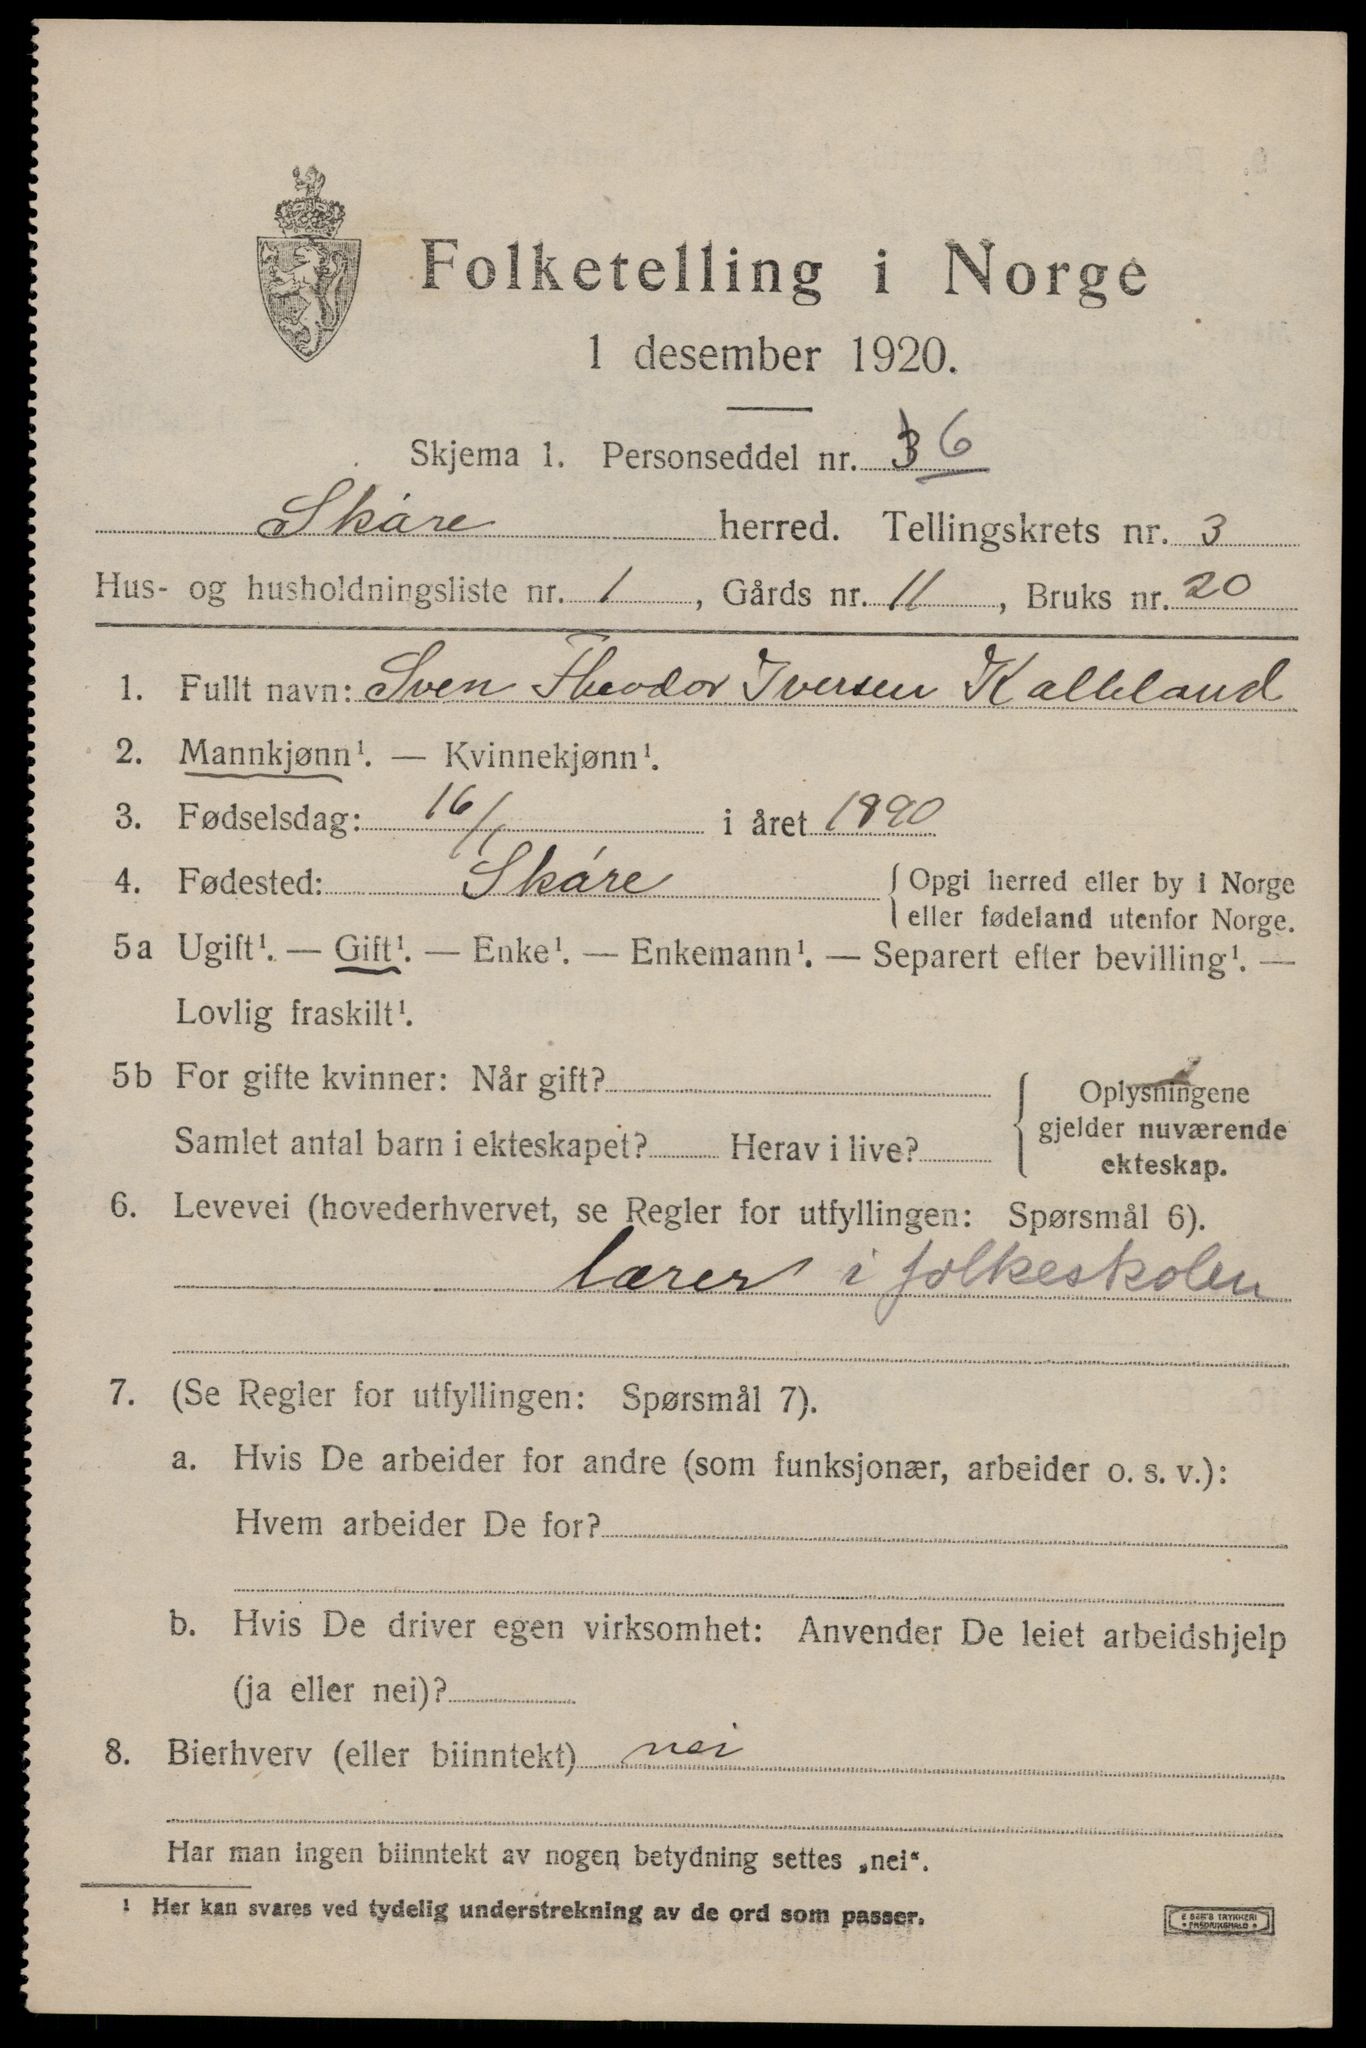 Folketelling i Norge
1 desember 1920.
Skjema 1. Personseddel nr. 6
Skåre herred. Tellingskrets nr. 3
Hus- og husholdningsliste nr. 1, Gårds nr. 11, Bruks nr. 20
1. Fullt navn: Sven Theodor Iversen Kalleland
2. Mannkjønn¹. — Kvinnekjønn¹.
3. Fødselsdag: 16/1 i året 1890
4. Fødested: Skåre { Opgi herred eller by i Norge
eller fødeland utenfor Norge.
5a Ugift¹. — Gift¹. — Enke¹. — Enkemann¹. — Separert efter bevilling¹. —
Lovlig fraskilt¹.
5b For gifte kvinner: Når gift? { Oplysningene
Samlet antal barn i ekteskapet? Herav i live? gjelder nuværende
ekteskap.
6. Levevei (hovederhvervet, se Regler for utfyllingen: Spørsmål 6).
lærer i folkeskolen
7. (Se Regler for utfyllingen: Spørsmål 7).
a. Hvis De arbeider for andre (som funksjonær, arbeider o. s. v.):
Hvem arbeider De for?
b. Hvis De driver egen virksomhet: Anvender De leiet arbeidshjelp
(ja eller nei)?
8. Bierhverv (eller biinntekt) nei
Har man ingen biinntekt av nogen betydning settes „nei“.
¹ Her kan svares ved tydelig understrekning av de ord som passer.
E SEM'S TRYKKERI
FREDRIKSHALD